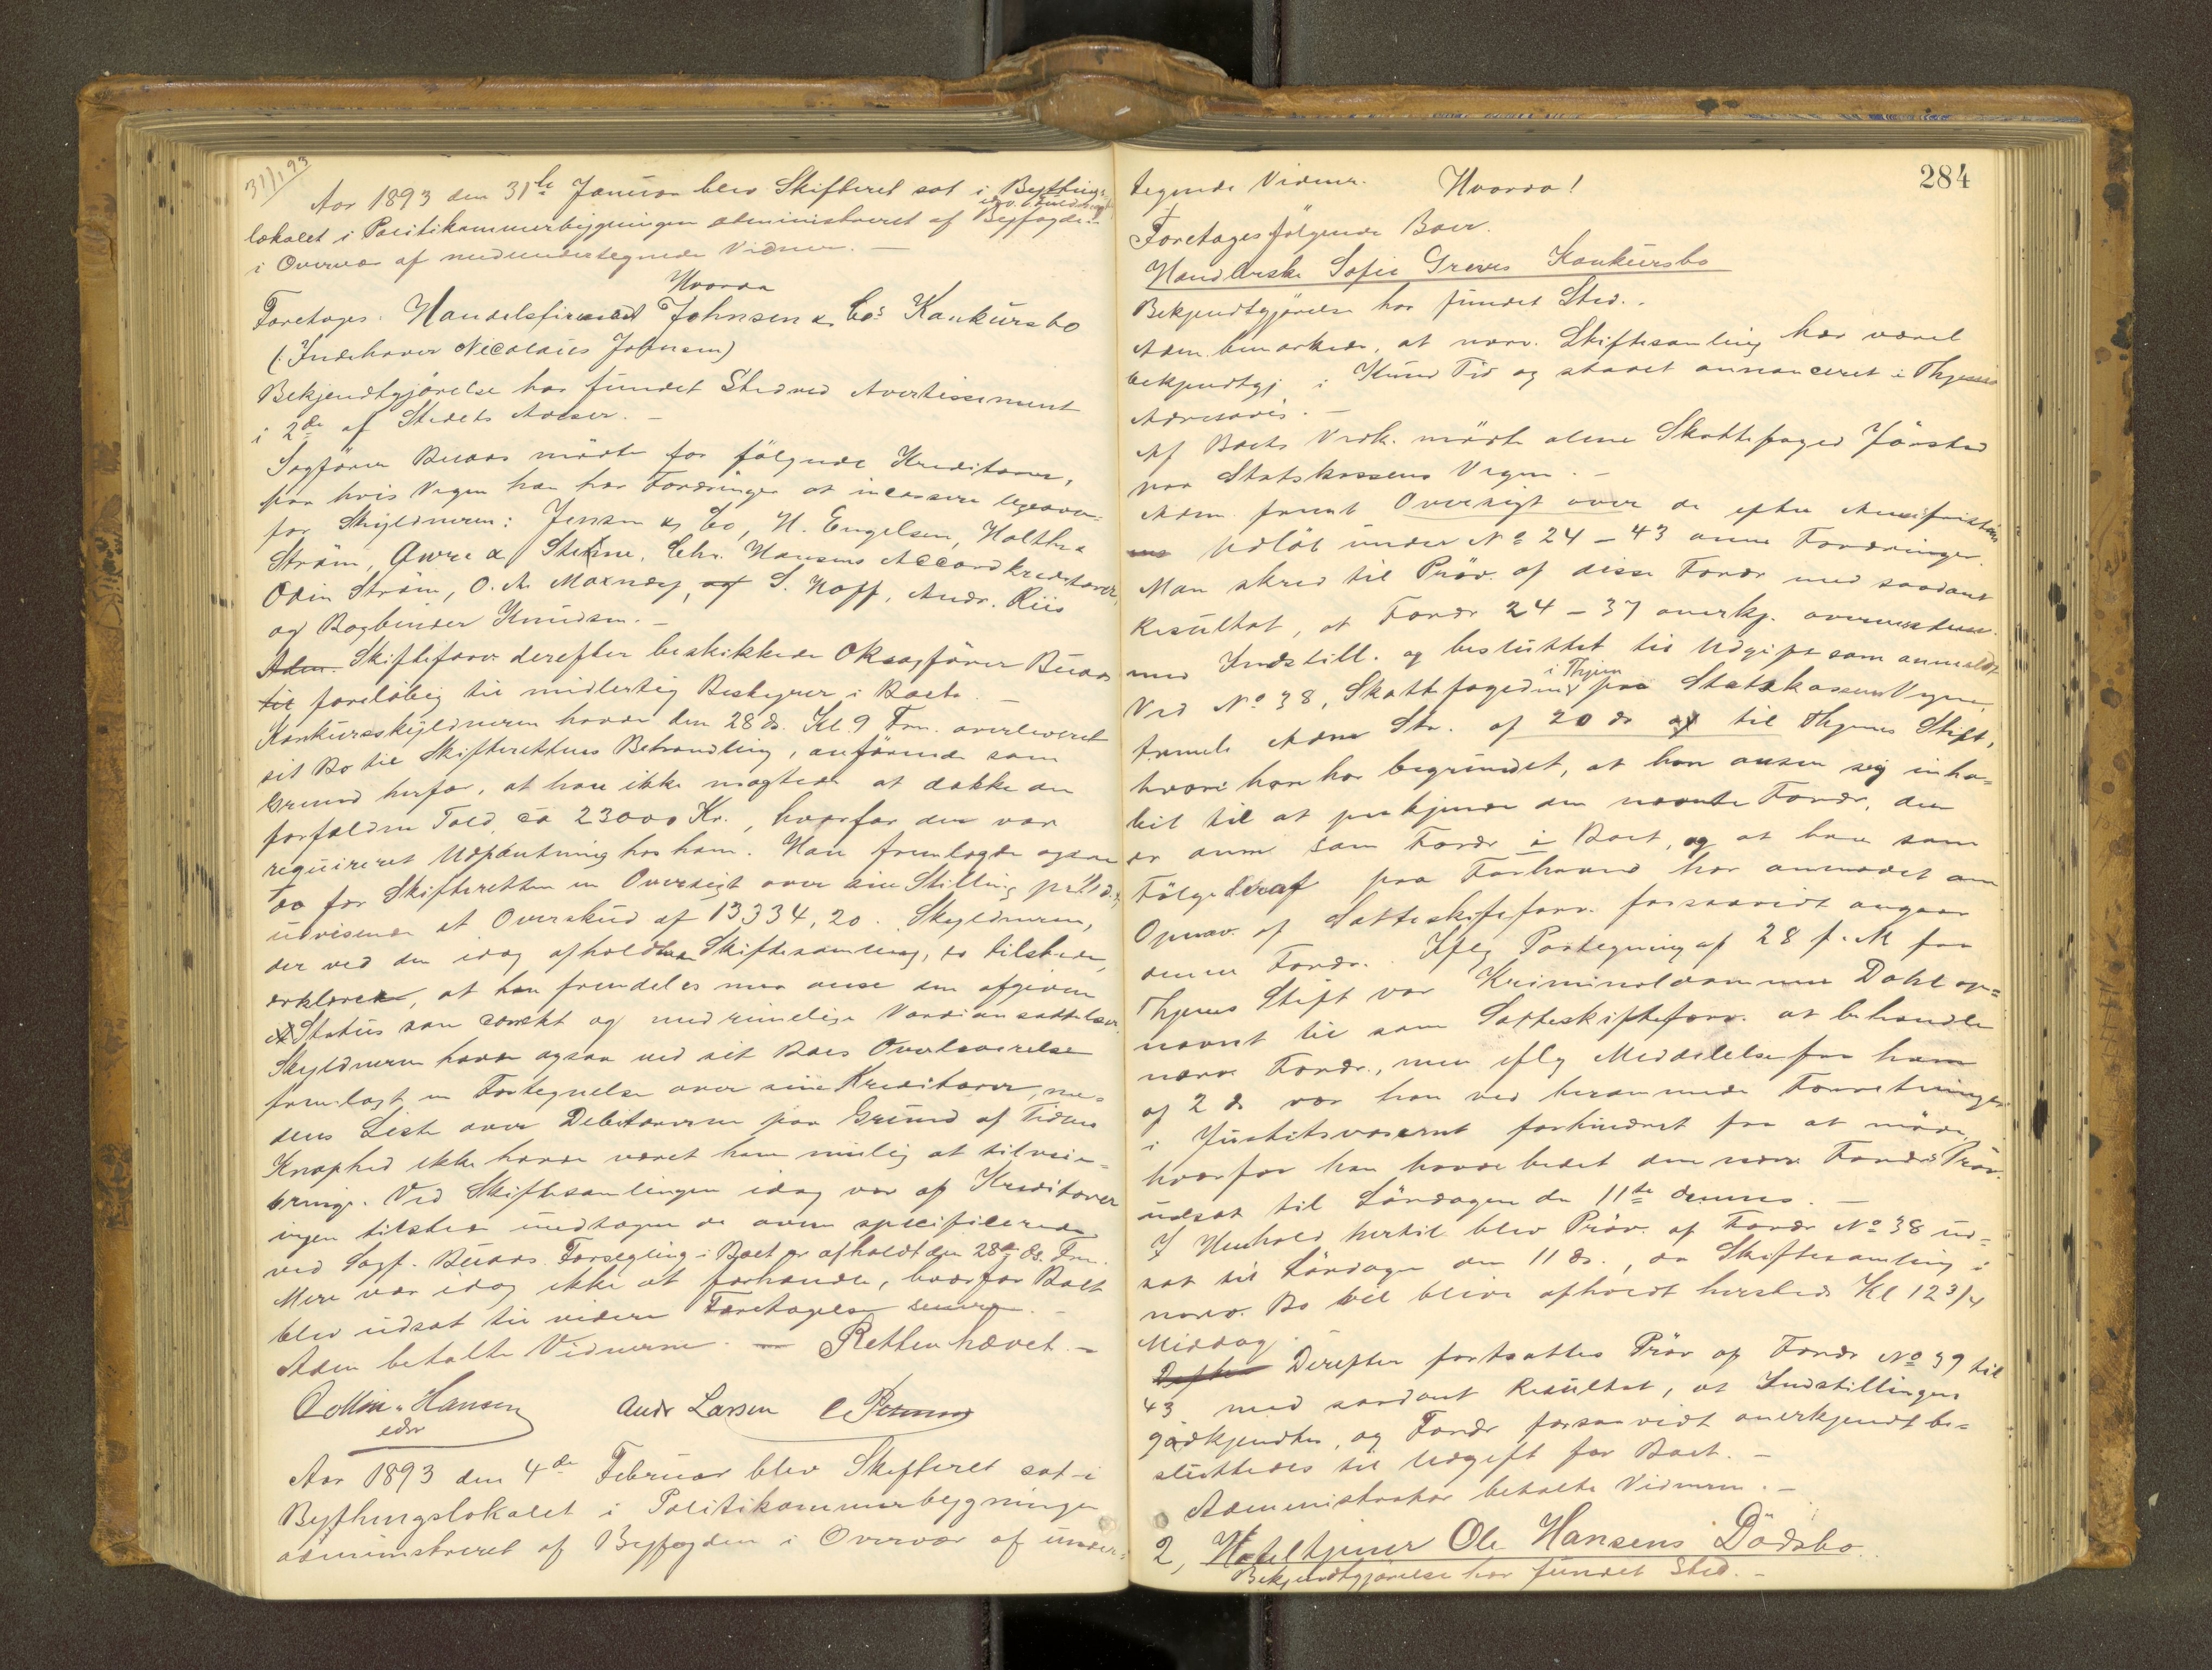 31/1 93
Aar 1893 den 31te Januar blev Skifteret sat i Bythings-
lokalet i Politikammerbygningen administreret af Byfogden
i Overvær af medundertegnede Vidner. —
Hvorda
Foretoges. Handelsfirmaet Johnsen & Cos Konkursbo
(: Indehaver Nicolaus Johnsen)
Bekjendtgjörelse har fundet Sted ved Avertissement
i 2de af Stedets Aviser. —
Sagförer Buaas mödte for fölgende Kreditorer,
paa hvis Vegne han har Fordringer at incassere ligeover-
for Skyldneren: Jensen & Co, H. Engelsen, Holthe &
Ström, Gurre & Stene, Chr. Hansens Accordkreditorer,
Odin Ström, O. A. Moxness, S. Hoff, Andr. Riis
og Bogbinder Knudsen. —
Adm. Skifteforv. derefter beskikkede Oksagförer Buaas
til forelöbig til midlertig Bestyrer i Boet.
Konkursskyldneren havde den 28 ds. Kl. 9 Fm. overleveret
sit Bo til Skifterettens Behandling, anförende som
Grund herfor, at han ikke magtede at dække den
forfaldne Told, ca 23000 Kr., hvorfor der var
requireret Udpantning hos ham. Han fremlagde ogsaa
da for Skifteretten en Oversigt over sin Stilling pr.
udvisende et Overskud af 13334,20. Skyldneren,
der ved den idag afholdte Skiftesamling, er tilstede,
erklærede, at han fremdeles maa anse den afgivne
Status som correkt og med rimelige Værdiansættelser.
Skyldneren havde ogsaa ved sit Boes Overleverelse
fremlagt en Fortegnelse over sine Kreditorer, me-
dens Liste over Debitorerne paa Grund af Tidens
Knaphed ikke havde været ham mulig at tilveie-
bringe. Ved Skiftesamlingen idag var af Kreditorer
ingen tilstede undtagen de oven specificerede
ved Sagf. Buaas. Forsegling i Boet er afholdt den 28de ds. Fm.
Mere var idag ikke at forhandle, hvorfor Boet
blev udsat til videre Foretagelse senere. —
Adm betalte Vidnerne. — Retten hævet. —
Collin-Hansen Andr Larsen
edsv
Aar 1893 den 4de Februar blev Skifteret sat i
Bythingslokalet i Politikammerbygningen
administreret af Byfogden i Overvær af under-
284
tegnede Vidner. Hvorda!
Foretoges fölgende Boer.
Handlerske Sofie Greves Konkursbo
Bekjendtgjörelse har fundet Sted.
Adm. bemærkede, at nærv. Skiftesamling har været
bekjendtgj i Kund Tid og staaet annonceret i Thjems
Adresseavis. —
Af Boets Vedk. mödte alene Skattefoged Jörstad
paa Statskassens Vegne. —
Adm. freml Oversigt over de efter
Udlöb under No 24 – 43 anm Fordringer.
Man skred til Pröv. af disse Fordr med saadant
Resultat, at Fordr 24 – 37 anerkj. overensstem.
med Indstill. og besluttet til Udgift som anmeldt
Ved No 38, Skattefogden i Thjem paa Statskassens Vegne,
fremle Adm Skr. af 20 ds til Thjems Stift,
hvori han har begrundet, at han anser sig inha-
bil til at paakjende den nævnte Fordr, der
er anm som Fordr i Boet, og at han som
Fölge deraf paa Forhaand har anmodet om
Opnæv. af Sætteskifteforv. forsaavidt angaar
denne Fordr. Iflg Paategning af 28 f. M fra
Thjems Stift var Kriminaldommer Dahl op-
nævnt til som Sætteskifteforv. at behandle
nævnte Fordr., men iflg Meddelelse fra ham
af 2 ds var han ved berammede Forretninger
i Justitsvæsenet forhindret fra at möde,
hvorfor han havde bedet den nævn Fordrs Pröv.
udsat til Löndagen den 11te dennes. —
I Henhold hertil blev Pröv. af Fordr No 38 ud-
sat til Lördagen den 11 ds., da Skiftesamling i
nærv. Bo vil blive afholdt hersteds Kl 12 3/4
Middag.
Derefter fortsattes Pröv af Fordr No 39 til
43 med saadant Resultat, at Indstillingen
godkjendtes, og Fordr forsaavidt anerkjendt be-
sluttedes til Udgift for Boet. —
Administrator betalte Vidnerne. —
2, Hotelkjener Ole Hansens Dödsbo.
Bekjendtgjörelse har fundet Sted. —